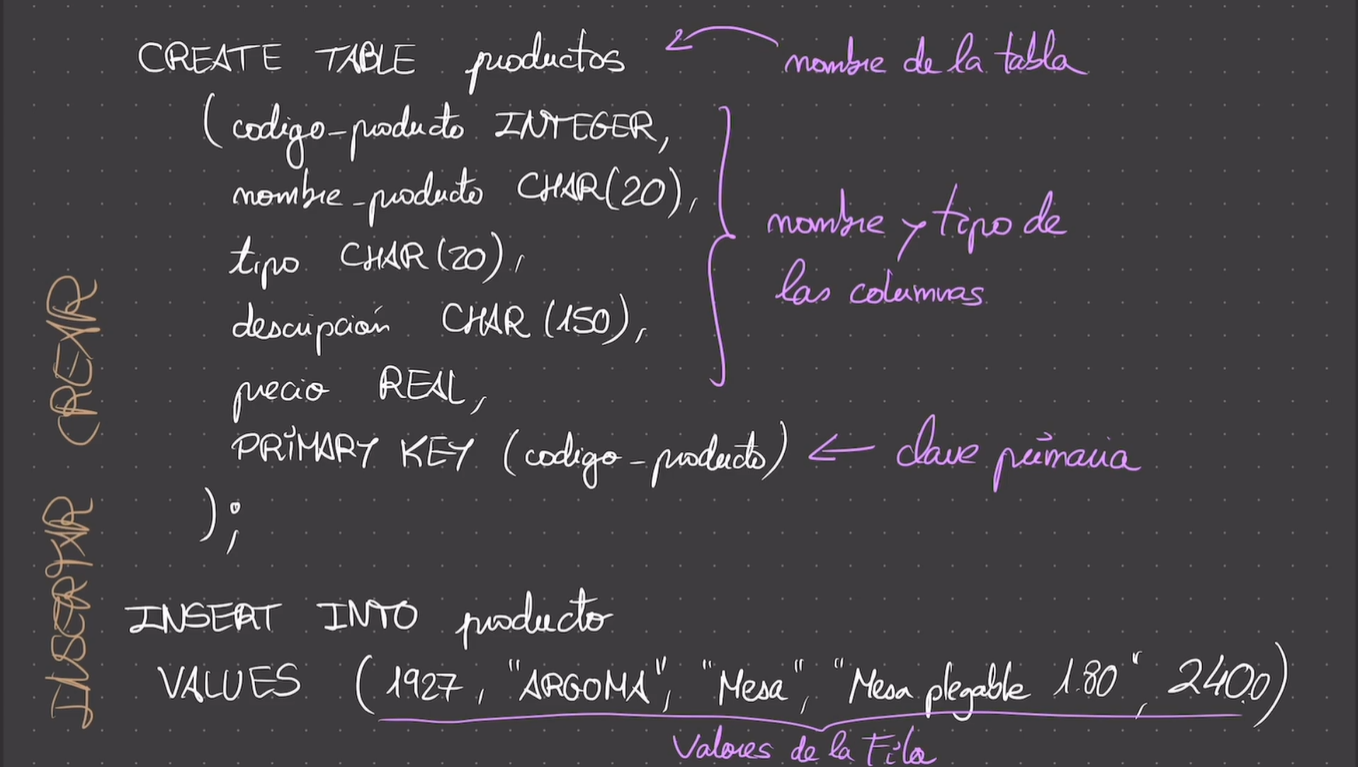 CREATE TABLE productos
nombre de la tabla
(codigo-producto INTEGER,
nombre-producto CHAR(20),
tipo CHAR(20),
descripción CHAR (150),
precio REAL,
nombre y tipo de
las columnas
PRIMARY KEY (codigo-producto)
clave primaria
);
CREAR
INSERTAR
INSERT INTO producto
VALUES (1927, "ARGOMA", "Mesa", "Mesa plegable 1.80", 240.0)
Valores de la Fila